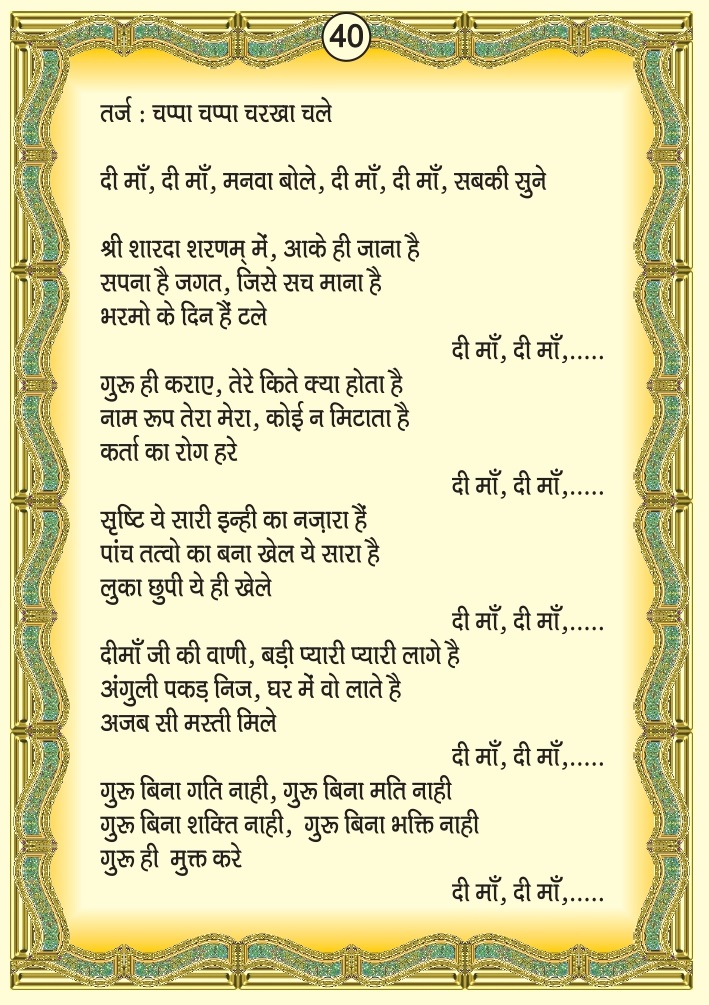 40
तर्ज : चप्पा चप्पा चरखा चले
दी माँ, दी माँ, मनवा बोले, दी माँ, दी माँ, सबकी सुने
श्री शारदा शरणम् में, आके ही जाना है
सपना है जगत, जिसे सच माना है
भरमो के दिन हैं टले
दी माँ, दी माँ,.....
गुरू ही कराए, तेरे किते क्या होता है
नाम रूप तेरा मेरा, कोई न मिटाता है
कर्ता का रोग हरे
दी माँ, दी माँ,.....
सृष्टि ये सारी इन्ही का नज़ारा हैं
पांच तत्वो का बना खेल ये सारा है
लुका छुपी ये ही खेले
दी माँ, दी माँ,.....
दीमाँ जी की वाणी, बड़ी प्यारी प्यारी लागे है
अंगुली पकड़ निज, घर में वो लाते है
अजब सी मस्ती मिले
दी माँ, दी माँ,.....
गुरू बिना गति नाही, गुरू बिना मति नाही
गुरू बिना शक्ति नाही, गुरू बिना भक्ति नाही
गुरू ही मुक्त करे
दी माँ, दी माँ,.....